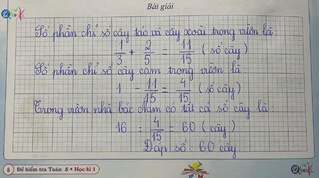 Bài giải
Số phần chỉ số cây táo và cây xoài trong vườn là
1/3 + 2/5 = 11/15 (số cây)
Số phần chỉ số cây cam trong vườn là
1 - 11/15 = 4/15 (số cây)
Trong vườn nhà bác chim có tất cả số cây là
16 : 4/15 = 60 (cây)
Đáp số: 60 cây
6 Đề kiểm tra Toán 5 • Học kì 1